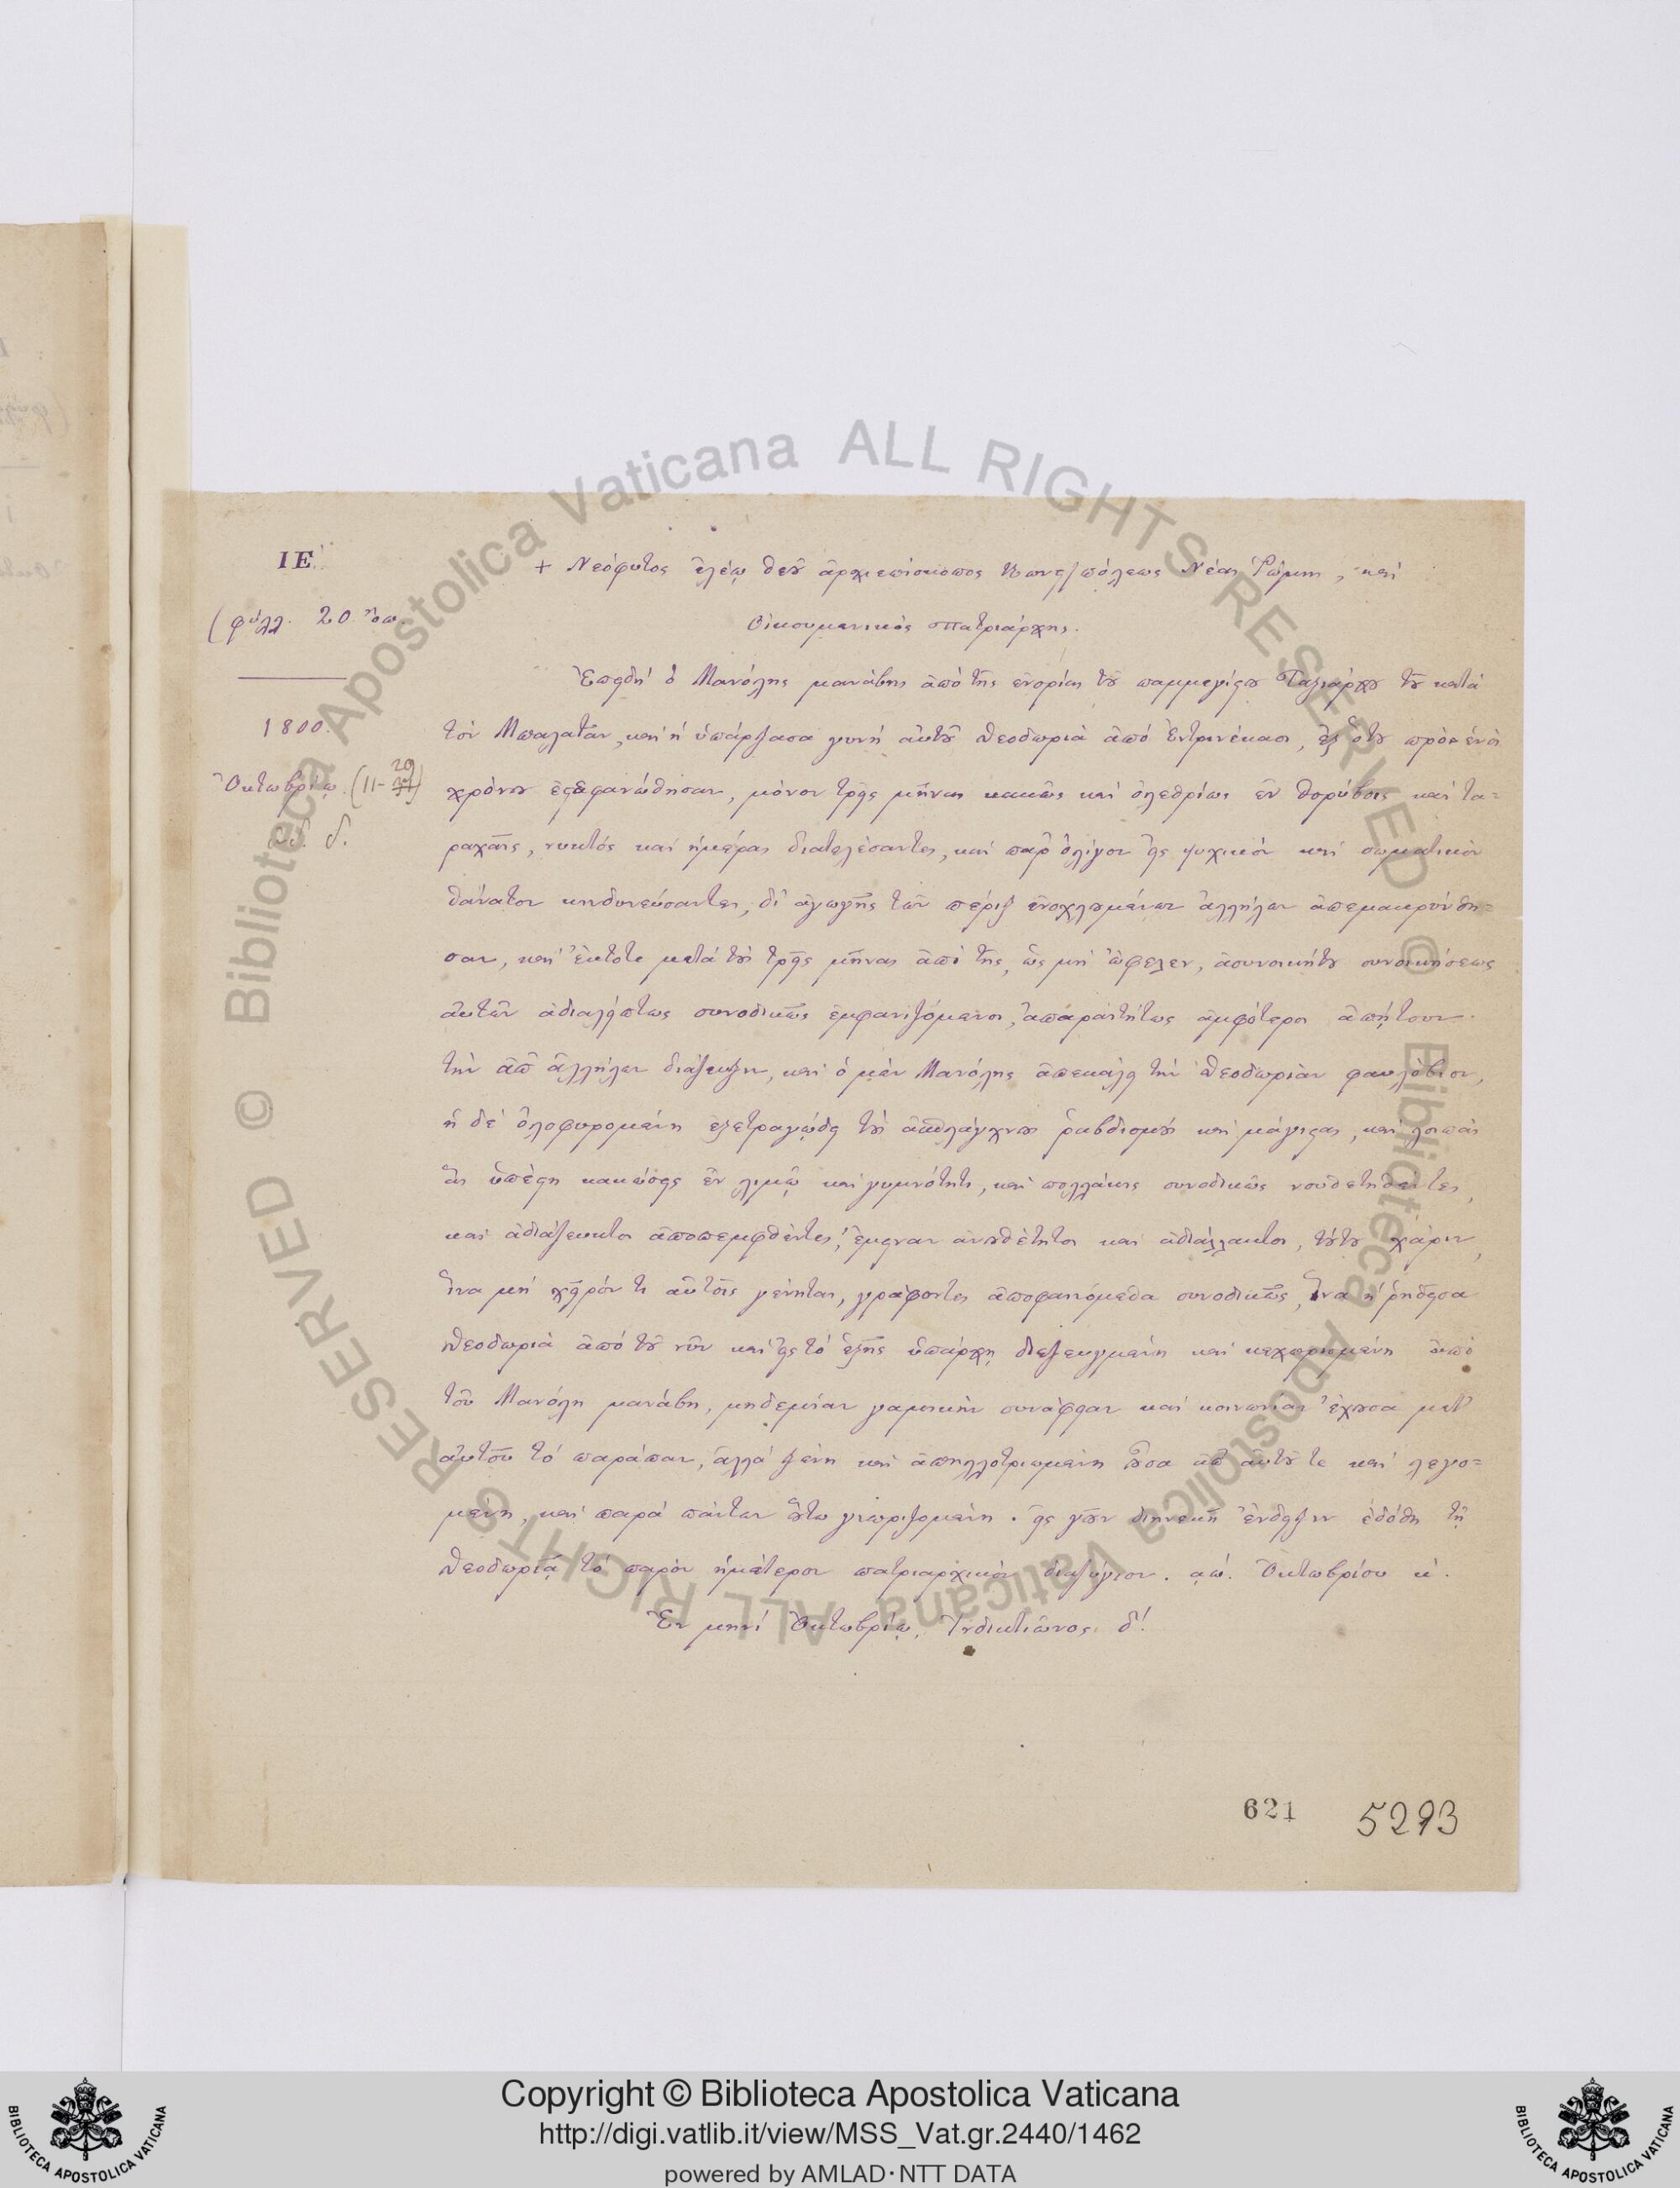 ΙΕ΄.
(φύλλ. 20 ὄπ.
1800.
Ὀκτωβρίῳ. (11-29
ἰνδ. δ΄.
+ Νεόφυτος ἐλέῳ Θεοῦ ἀρχιεπίσκοπος Κωνςπόλεως Νέας Ῥώμης, καὶ
Οἰκουμενικὸς Πατριάρχης.
Ἐπειδὴ ὁ Μανόλης μανάβης ἀπὸ τῆς ἐνορίας τοῦ παμμεγίστου Ταξιάρχου τοῦ κατὰ
τὸν Μπαλατᾶν, καὶ ἡ ὑπάρξασα γυνὴ αὐτοῦ Θεοδωριὰ ἀπὸ Ἐντιρνέκασι, ἐξ ὅτου πρὸ ἑνὸς
χρόνου ἐςεφανώθησαν, μόνον τρεῖς μῆνας κακῶς καὶ ὀλεθρίως ἐν θορύβοις καὶ τα-
ραχαῖς, νυκτὸς καὶ ἡμέρας διατελέσαντες, καὶ παρ᾽ ὀλίγον εἰς ψυχικὸν καὶ σωματικὸν
θάνατον κινδυνεύσαντες, δι᾽ ἀγωγῆς τῶν πέριξ ἐνοχλουμένων ἀλλήλων ἀπεμακρύνθη-
σαν, καὶ ἔκτοτε μετὰ τοὺς τρεῖς μῆνας ἀπὸ τῆς, ὡς μὴ ὤφελεν, ἀσυνοικήτου συνοικήσεως
αὐτῶν ἀδιαλείπτως συνοδικῶς ἐμφανιζόμενοι, ἀπαραιτήτως ἀμφότεροι ἀπῄτουν
τὴν ἀπ᾽ ἀλλήλων διάζευξιν, καὶ ὁ μὲν Μανόλης ἀπεκάλει τὴν Θεοδωριὰν φαυλόβιον,
ἡ δὲ ὀλοφυρομένη ἐξετραγῴδει τοὺς ἀσπλάγχνους ῥαβδισμοὺς καὶ μάςιγας, καὶ λοιπὰς
ἃς ὑπέςη κακώσεις ἐν λιμῷ καὶ γυμνότητι, καὶ πολλάκις συνοδικῶς νουθετηθέντες,
καὶ ἀδιάζευκτοι ἀποπεμφθέντες, ἔμειναν ἀνουθέτητοι καὶ ἀδιάλλακτοι, τούτου χάριν,
ἵνα μὴ χεῖρόν τι αὐτοῖς γένηται, γράφοντες ἀποφαινόμεθα συνοδικῶς, ἵνα ἡ ῥηθεῖσα
Θεοδωριὰ ἀπὸ τοῦ νῦν καὶ εἰς τὸ ἑξῆς ὑπάρχῃ διεζευγμένη καὶ κεχωρισμένη ἀπὸ
τοῦ Μανόλη μανάβη, μηδεμίαν γαμικὴν συνάφειαν καὶ κοινωνίαν ἔχουσα μετ᾽
αὐτοῦ τὸ παράπαν, ἀλλὰ ξένη καὶ ἀπηλλοτριωμένη οὖσα ἀπ᾽ αὐτοῦ τε καὶ λεγο-
μένη, καὶ παρὰ πάντων οὕτω γνωριζομένη. εἰς γοῦν διηνεκῆ ἔνδειξιν ἐδόθη τῇ
Θεοδωριᾷ τὸ παρὸν ἡμέτερον πατριαρχικὸν διαζύγιον. αω΄. Ὀκτωβρίου κ΄.
Ἐν μηνὶ Ὀκτωβρίῳ, Ἰνδικτιῶνος δ΄.
621 5293
Biblioteca Apostolica Vaticana ALL RIGHTS RESERVED ©
Biblioteca Apostolica Vaticana ALL RIGHTS RESERVED ©
Copyright © Biblioteca Apostolica Vaticana
http://digi.vatlib.it/view/MSS_Vat.gr.2440/1462
powered by AMLAD·NTT DATA
BIBLIOTECA APOSTOLICA VATICANA
BIBLIOTECA APOSTOLICA VATICANA